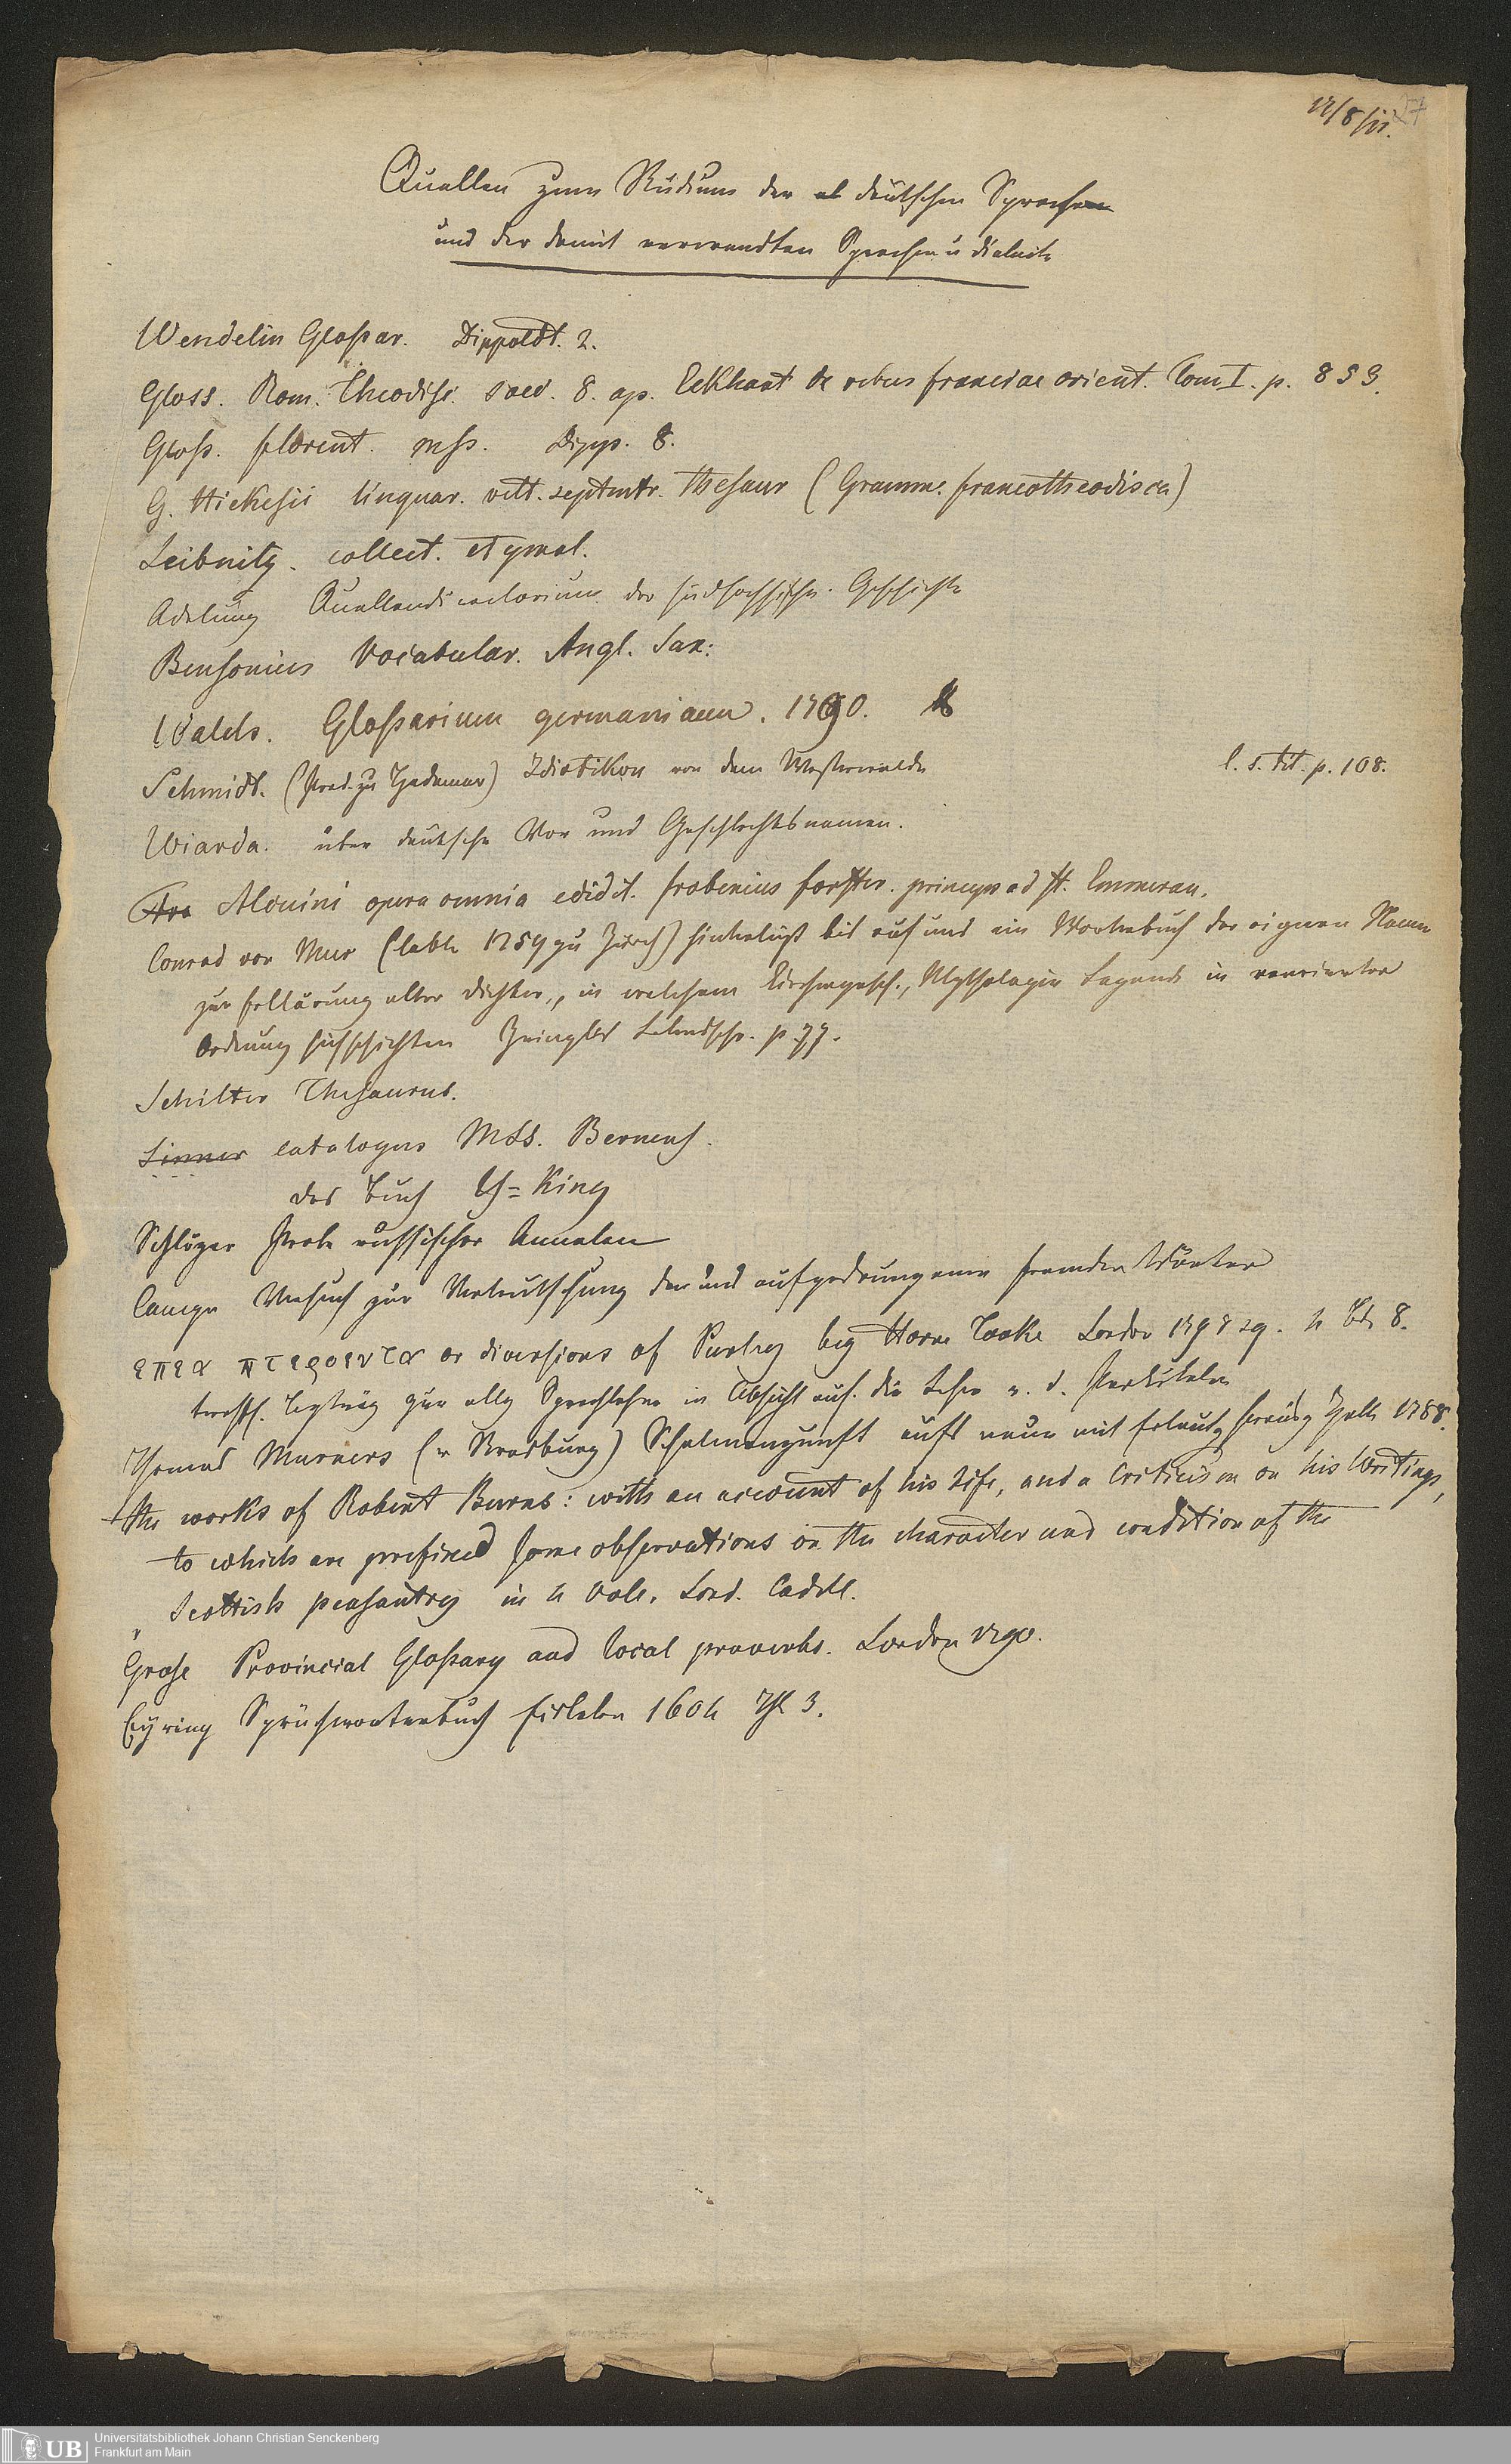 27
Quellen zum Studium der deutschen Sprachen
und der damit verwandten Sprachen u dialecte
Wendelin Gloßar. Dippoldt. 2.
Gloss. Rom. Theodisc. saec. 8. ap. Eckhart de rebus franciae orient. Tom I. p. 853.
Gloß. florent. mss. Dipp. 8.
G. Hickesii linguar. vett. septentr. Thesaur (Gramm. francotheodisca)
Leibnitz. collect. etymol.
Adelung Quellendirectorium der südsächsischen Geschichte
Bensonius Vocabular. Angl. Sax:
Walch. Gloßarium germanicum. 1790.
Schmidt. (Pred. zu Hadamar) Idiotikon von dem Westerwalde l. s. tit. p. 108.
Wiarda. über deutsche Vor und Geschlechtsnamen.
Alcuini opera omnia edidit. frobenius forster. princeps ad St. Emmeran.
Conrad von Mur (lebte 1259 zu Zürch) hinterließ bis auf uns ein Wörterbuch der eignen Namen
zur Erklärung alter Dichter, in welchem Kirchengesch., Mythologie Legende in
Ordnung
Schilter Thesaurus.
Sinner catalogus MSS. Bernens.
das Buch Y=King
Schlözer Probe russischer Annalen
Campe Versuch zur Verdeutschung der uns aufgedrungenen fremden Wörter
επεα πτεροεντα or diversions of Purley by Horne Tooke London 1798 sq. 4 Bde 8.
treffl. Beyträg zur allg Sprachlehre in Absicht auf die Lehre v. d. Partikeln
Thomas Murners (v Strasburg) Schelmenzunft aufs neue mit Erläutg herausg Halle 1788.
the works of Robert Burns: with an account of his Life, and a Criticism on his Writings,
to which are prefixed some observations on the character and condition of the
Scottish peasantry in 4 Vols. Lond. Cadell.
Grose Provincial Gloßary and local proverbs. London 1790.
Eyring Sprüchwörterbuch Eisleben 1604 Thl 3.
UB
Universitätsbibliothek Johann Christian Senckenberg
Frankfurt am Main